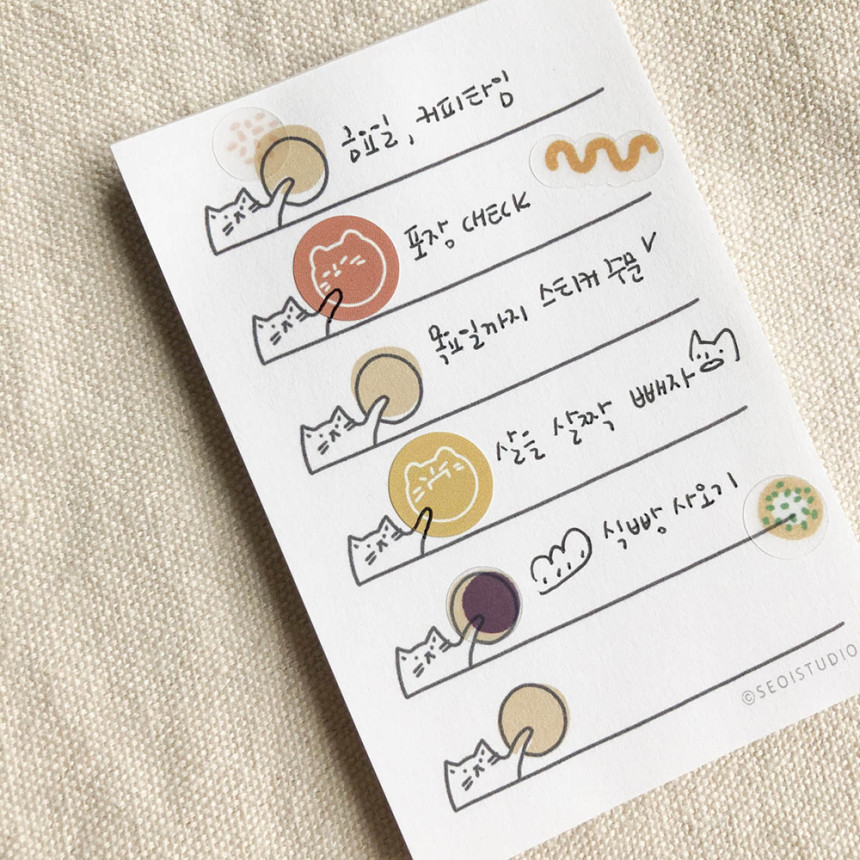 흠요일, 커피타임
포장 CHECK
목요일까지 스티커 주문
살을 살짝 빼자
식빵 사오기
©SEOISTUDIO